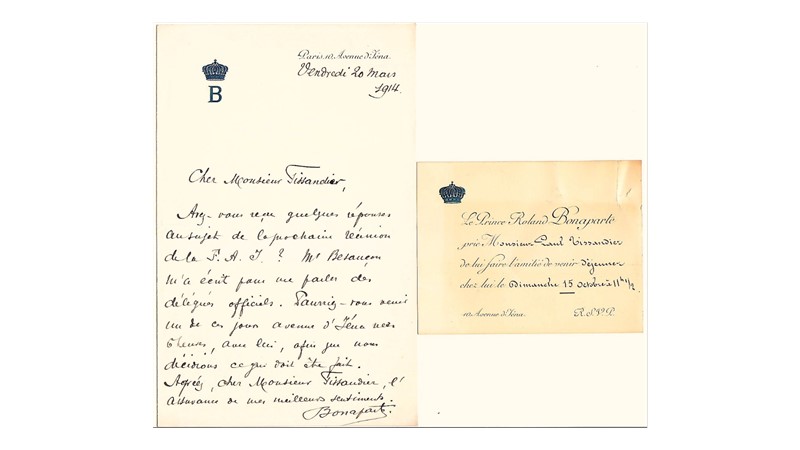 B
Paris, 10, Avenue d'Iéna.
Vendredi 20 Mars
1914.
Cher Monsieur Tissandier,
Avez-vous reçu quelques réponses
au sujet de la prochaine réunion
de la F. A. I ? Mr Besançon
m'a écrit pour me parler des
délégués officiels. Pourriez-vous venir
un de ces jours avenue d'Iéna vers
6 heures, avec lui, afin que nous
décidions ce qui doit être fait.
Agréez, cher Monsieur Tissandier, l'
assurance de mes meilleurs sentiments.
Bonaparte.
Le Prince Roland Bonaparte
prie Monsieur Paul Tissandier
de lui faire l'amitié de venir déjeuner
chez lui le Dimanche 15 octobre à 11h 1/2
10, Avenue d'Iéna. R. S. V. P.